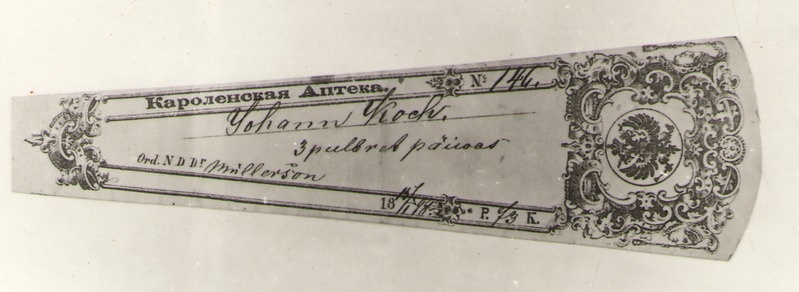 Кароленская Аптека. № 146.
Johann Koch.
3 pulbret päiwas
Ord. N D Dr Müllerson
18
P. /3 K.